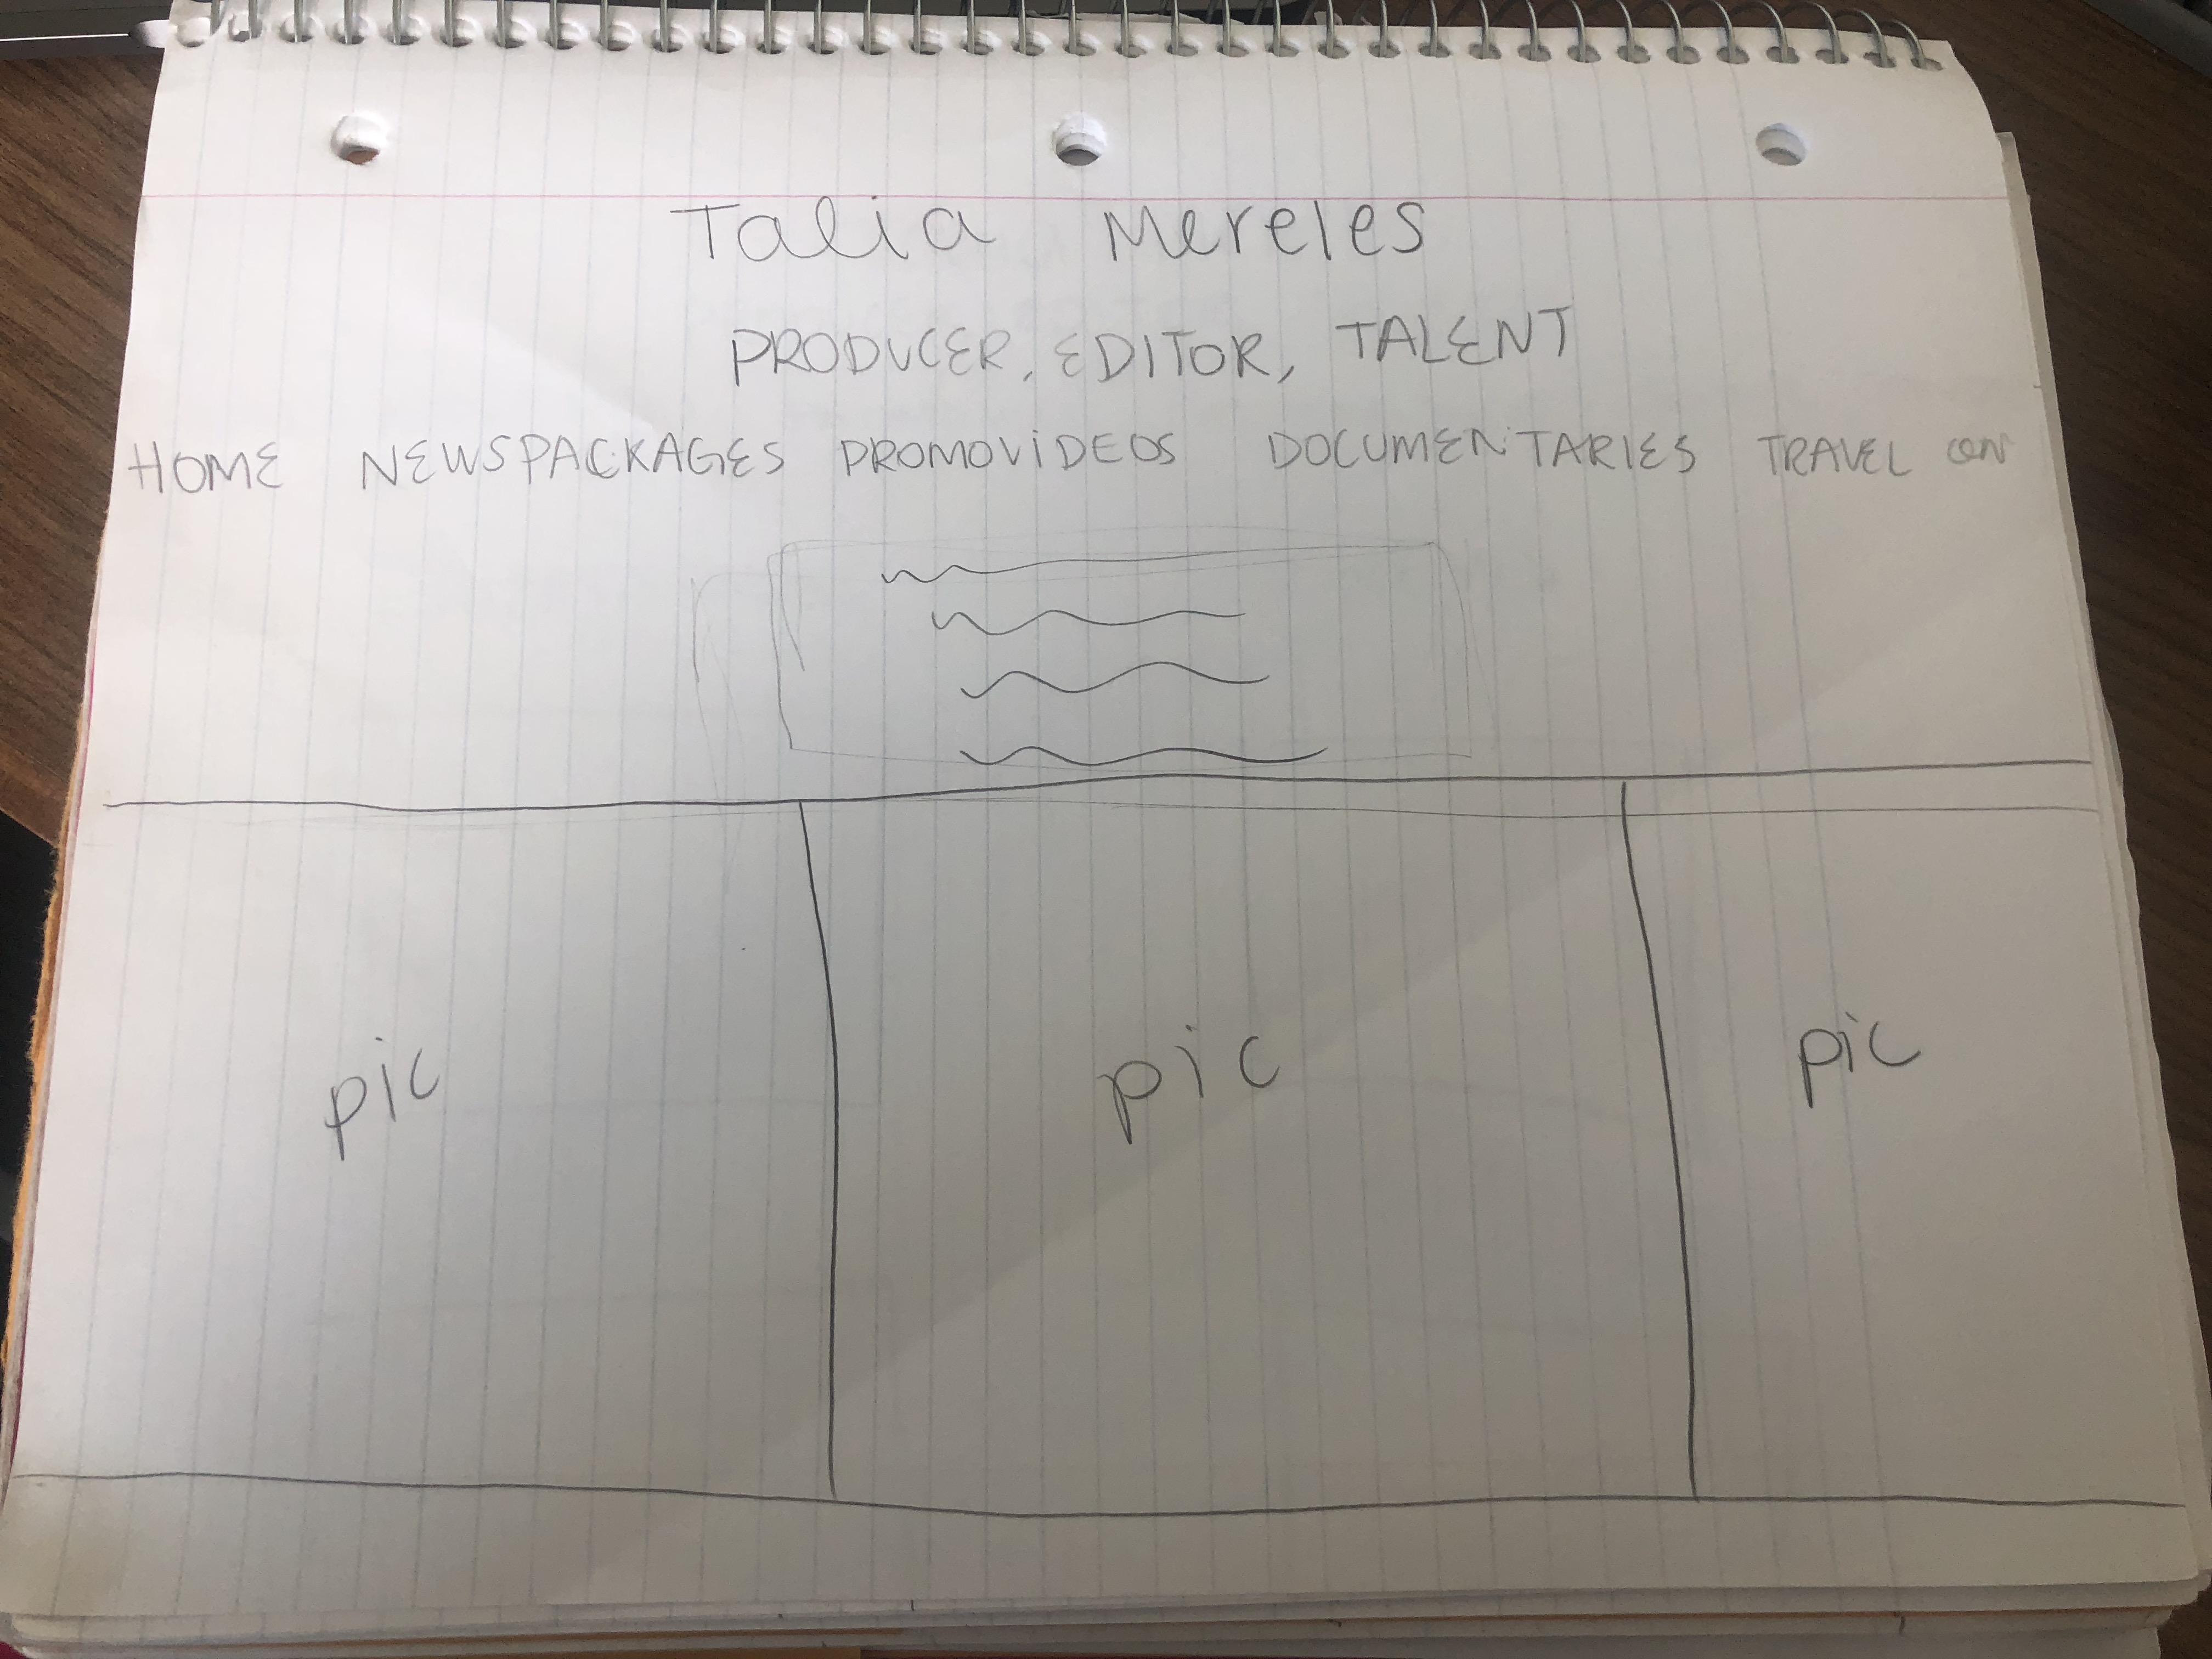 Talia Mereles
PRODUCER, EDITOR, TALENT
HOME NEWSPACKAGES PROMOVIDEOS DOCUMENTARIES TRAVEL CON
pic pic pic